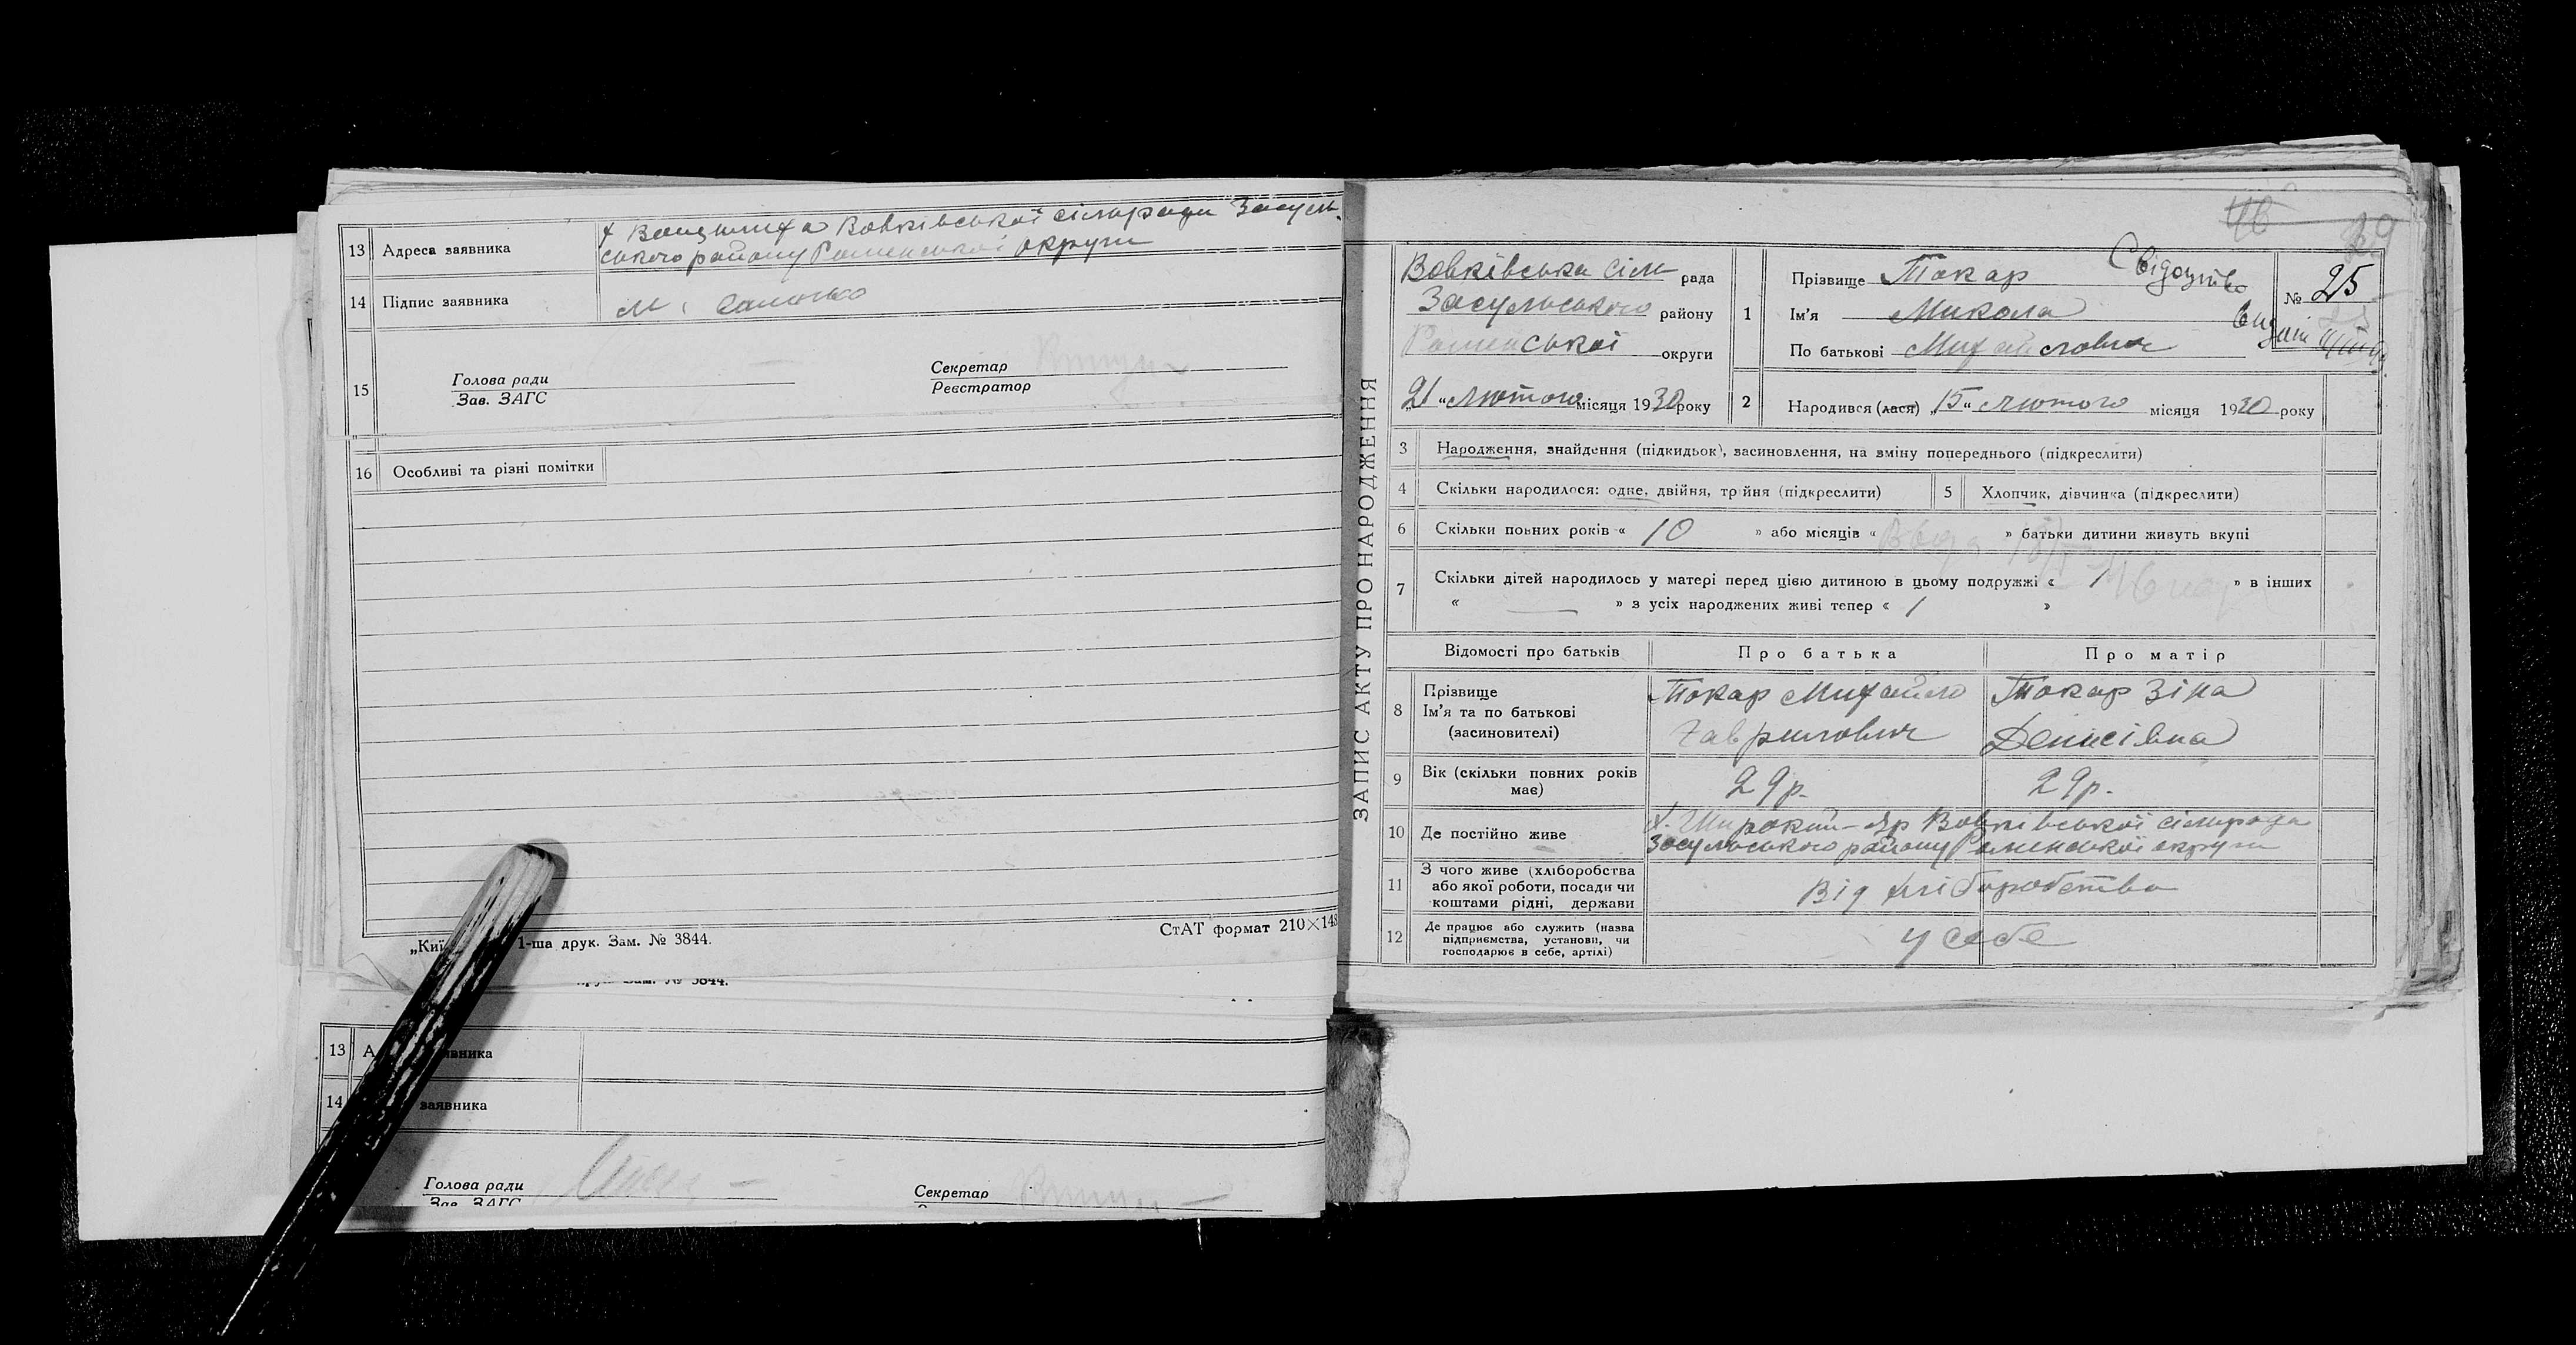 13 Адреса заявника
Вовківської сільради Засуль-
ського району Роменської округи
14 Підпис заявника
М.
15 Голова ради
Зав. ЗАГС
Секретар
Реєстратор
16 Особливі та різні помітки
1-ша друк. Зам. № 3844.
СтАТ формат 210×148
Зам. № 3844.
13
заявника
14 заявника
Голова ради
Зав. ЗАГС
Секретар
ЗАПИС АКТУ ПРО НАРОДЖЕННЯ
46
Вовківська сіль рада
Засульського району
Роменської округи
„21“ Лютого місяця 1930 року
1 Прізвище Токар
Ім'я Микола
По батькові Михайлович
Свідоцтво
видано
№ 25
2 Народився (лася) „15“ Лютого місяця 1930 року
3 Народження, знайдення (підкидьок), засиновлення, на зміну попереднього (підкреслити)
4 Скільки народилося: одне, двійня, трійня (підкреслити)
5 Хлопчик, дівчинка (підкреслити)
6 Скільки повних років « 10 » або місяців « » батьки дитини живуть вкупі
7 Скільки дітей народилось у матері перед цією дитиною в цьому подружжі « 1 » в інших
« — » з усіх народжених живі тепер « 1 »
Відомості про батьків Про батька Про матір
8 Прізвище
Ім'я та по батькові
(засиновителі)
Токар Михайло
Гаврилович
Токар Зіна
Денисівна
9 Вік (скільки повних років
має)
29р.
29р.
10 Де постійно живе
х. Широкий-Яр Вовківської сільрада
Засульського району Роменської округи
11 З чого живе (хліборобства
або якої роботи, посади чи
коштами рідні, держави
Від хліборобства
12 Де працює або служить (назва
підприємства, установи, чи
господарює в себе, артілі)
у себе